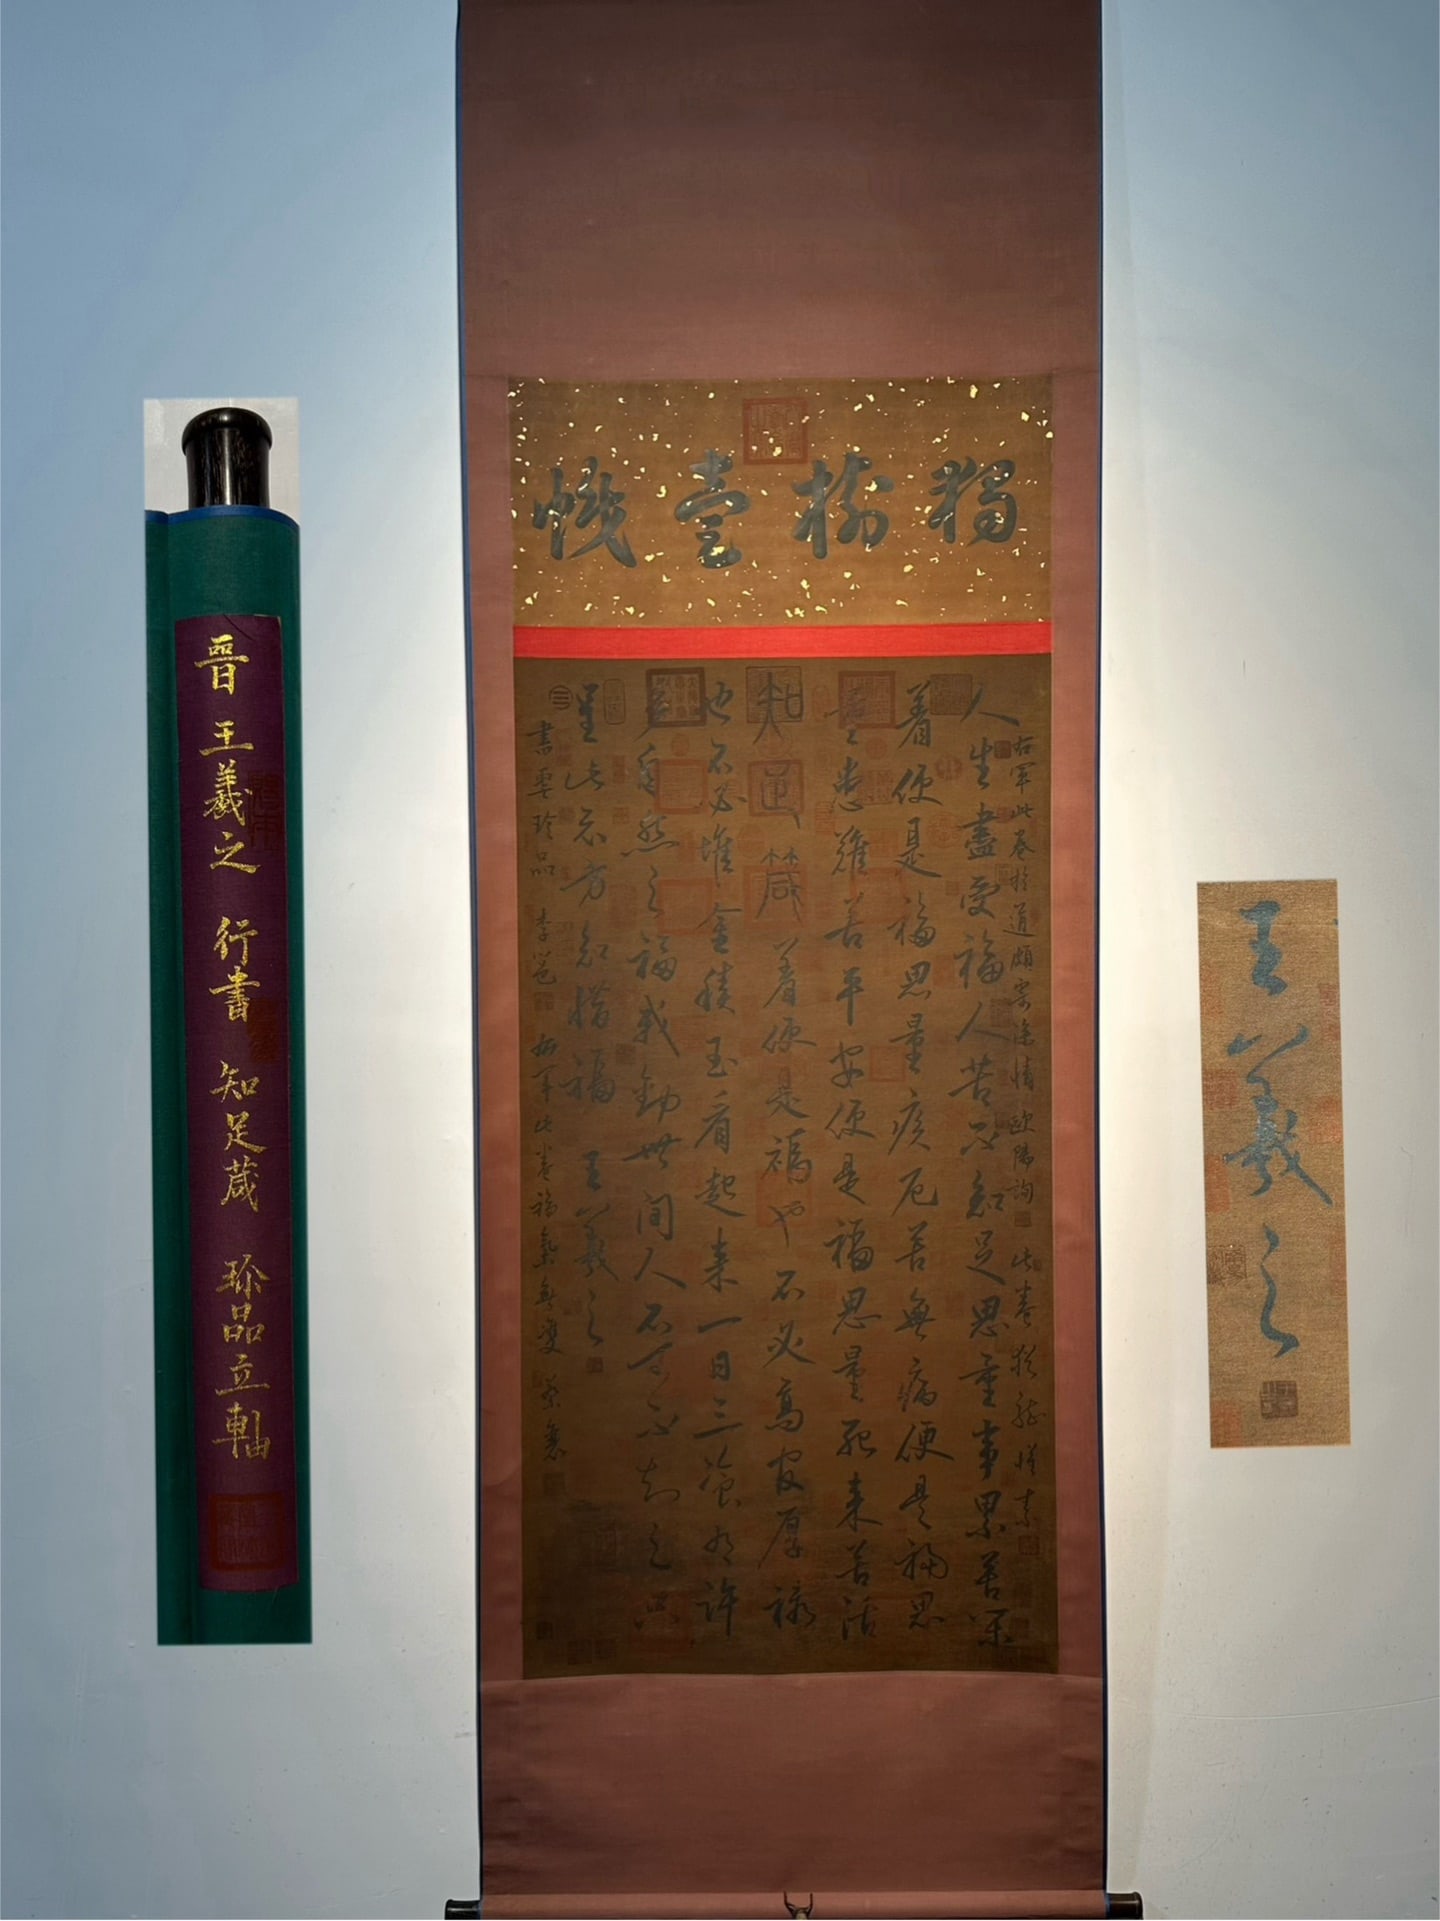 獨樹壹幟
右軍此卷於道頗寄深情 歐陽詢 此卷 懷素
人生盡受福人苦不知足思量事累苦閑
着便是福思量疾厄苦無病便是福思
量患難苦平安便是福思量死來苦活
知足箴 着便是福也不必高官厚祿
也不必堆金積玉看起來一日三餐有許
多自然之福我勸世間人不可不知足
星此示方知惜福 王羲之
書要珍品 李邕 右軍此卷福氣無雙 蔡襄
晉 王羲之 行書 知足葴 珎品立軸
王羲之